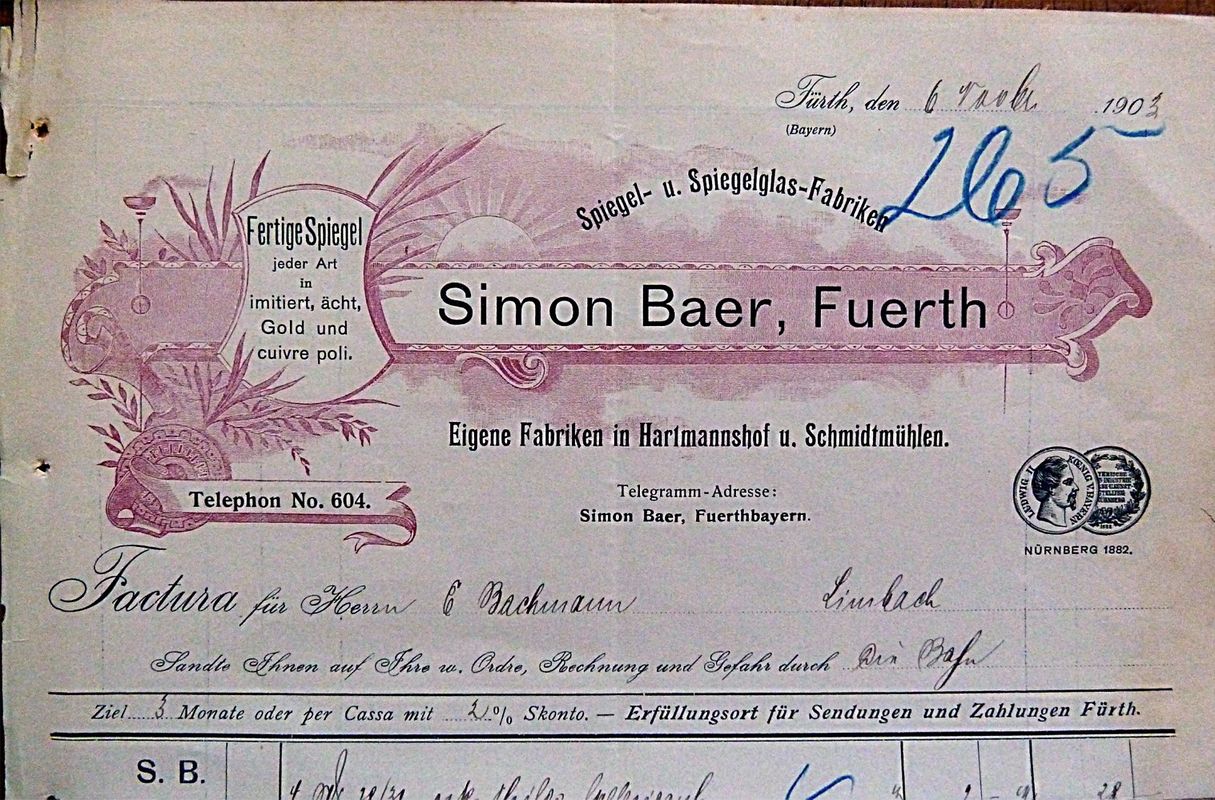 Fürth, den 6 Novbr 1903
(Bayern)
265
Spiegel- u. Spiegelglas-Fabriken
Fertige Spiegel
jeder Art
in
imitiert, ächt,
Gold und
cuivre poli.
Simon Baer, Fuerth
Eigene Fabriken in Hartmannshof u. Schmidtmühlen.
Telephon No. 604.
Telegramm-Adresse:
Simon Baer, Fuerthbayern.
LUDWIG II KOENIG V. BAYERN
NÜRNBERG 1882.
Factura für Herrn E Bachmann Limbach
Sandte Ihnen auf Ihre w. Ordre, Rechnung und Gefahr durch Die Bahn
Ziel 3 Monate oder per Cassa mit 2 % Skonto. — Erfüllungsort für Sendungen und Zahlungen Fürth.
S. B.